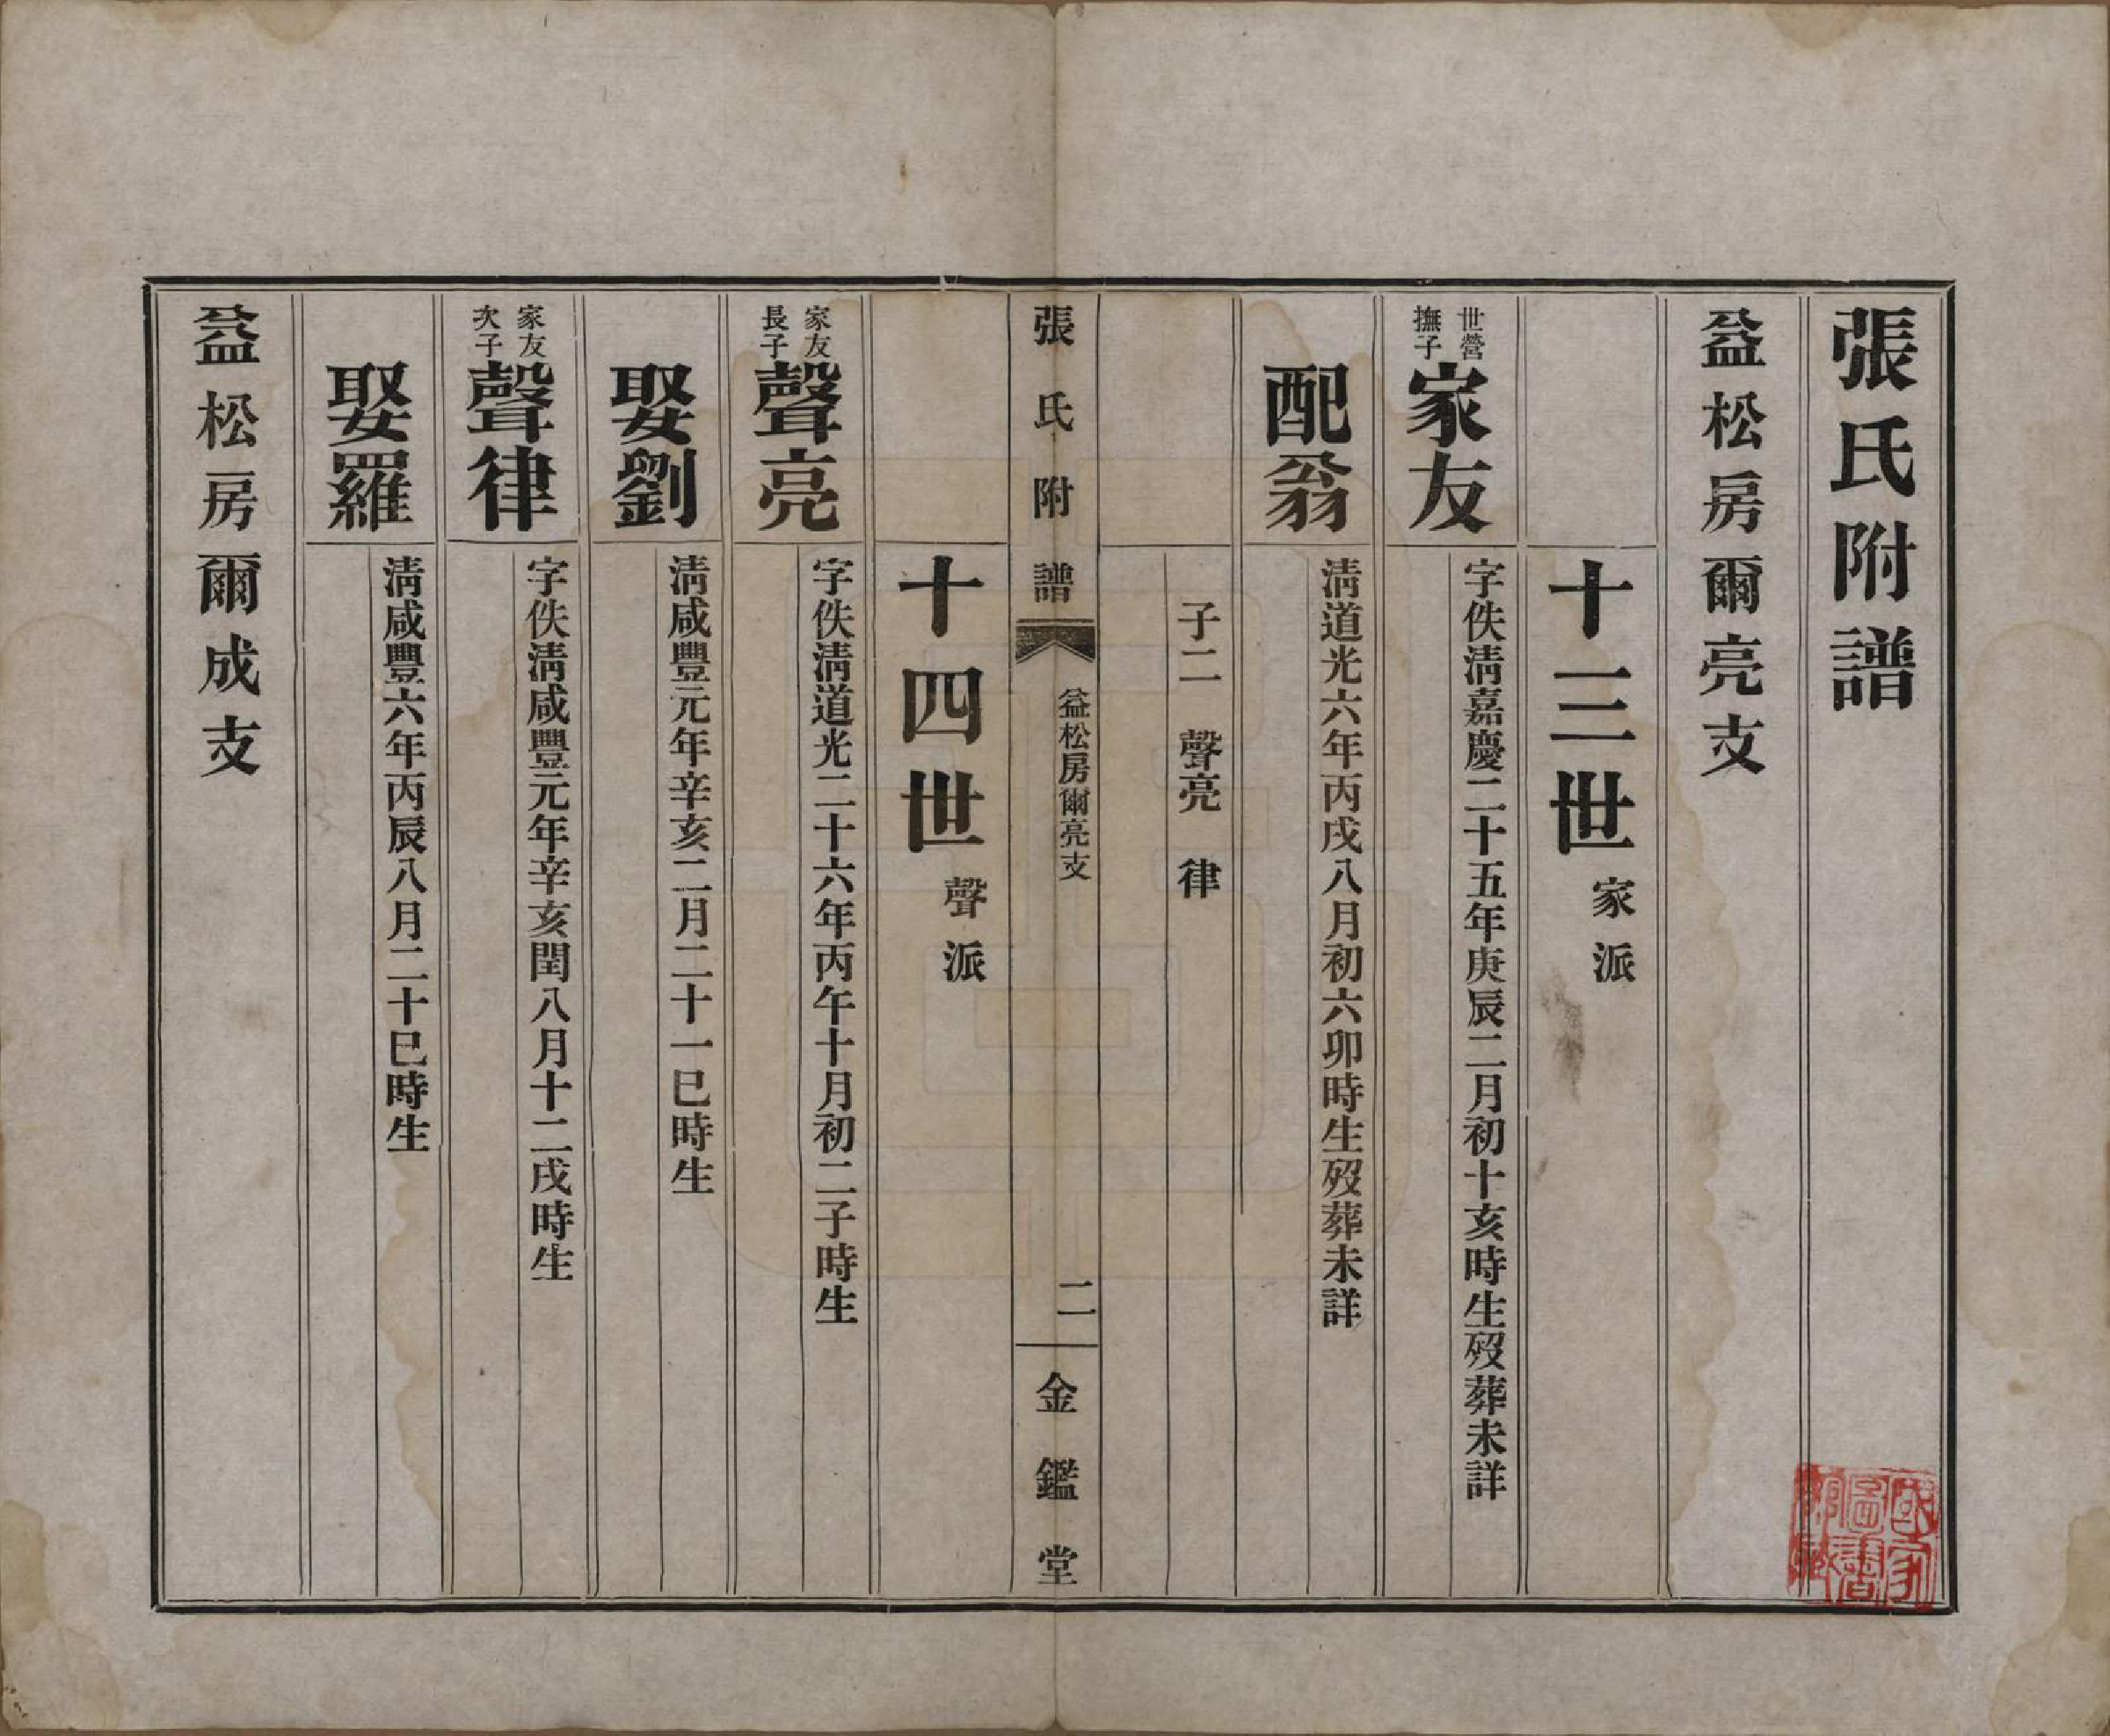 張氏附譜
益松房爾亮支
十三世家派
世營
撫子
家友
字佚淸嘉慶二十五年庚辰二月初十亥時生歿葬未詳
配翁
淸道光六年丙戌八月初六卯時生歿葬未詳
子二　聲亮　律
張氏附譜
益松房爾亮支
二
金鑑堂
十四世聲派
家友
長子
聲亮
字佚淸道光二十六年丙午十月初二子時生
娶劉
淸咸豐元年辛亥二月二十一巳時生
家友
次子
聲律
字佚淸咸豐元年辛亥閏八月十二戌時生
娶羅
淸咸豐六年丙辰八月二十巳時生
益松房爾成支